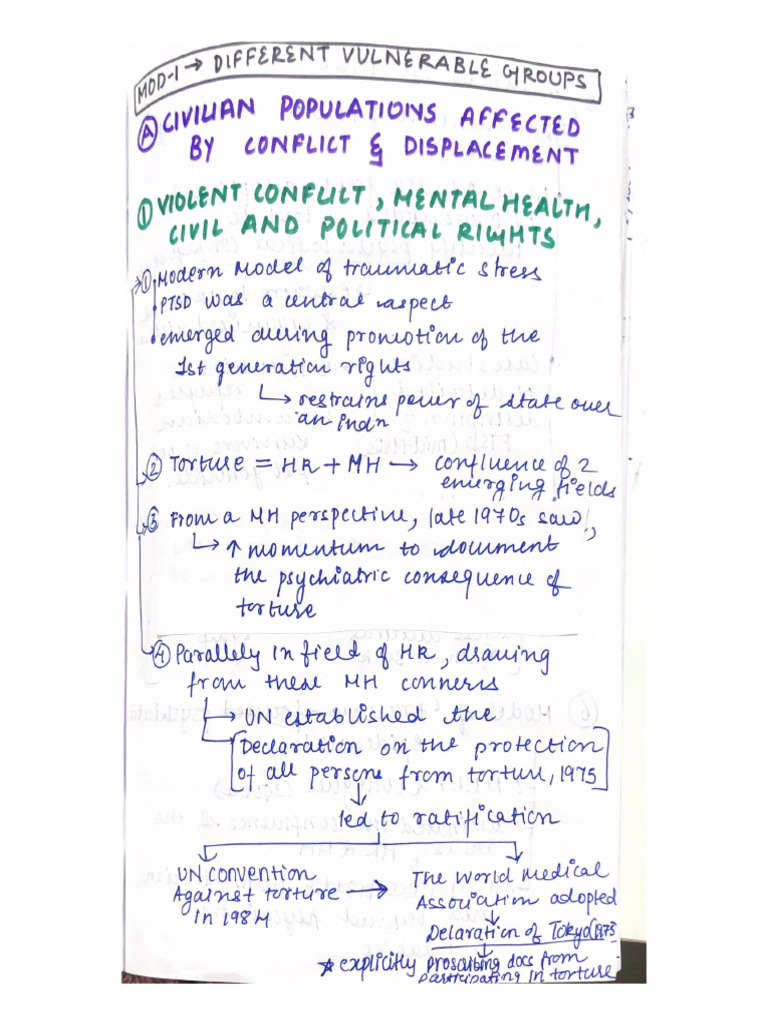 MOD-1 → DIFFERENT VULNERABLE GROUPS
Ⓐ CIVILIAN POPULATIONS AFFECTED
BY CONFLICT & DISPLACEMENT
① VIOLENT CONFLICT, MENTAL HEALTH,
CIVIL AND POLITICAL RIGHTS
① Modern Model of traumatic stress
• PTSD was a central aspect
• emerged during promotion of the
1st generation rights
↳ restrains power of state over
an indn
② Torture = HR + MH → confluence of 2
emerging fields
③ From a MH perspective, late 1970s saw,
↳ ↑ momentum to document
the psychiatric consequence of
torture
④ Parallely in field of HR, drawing
from these MH conerns
→ UN established the
[Declaration on the protection
of all persons from torture, 1975]
↓
led to ratification
UN convention
Against torture →
in 1984
The World Medical
Association adopted
Delaration of Tokyo (1975
★ explicitly proscribing docs from
participating in torture.